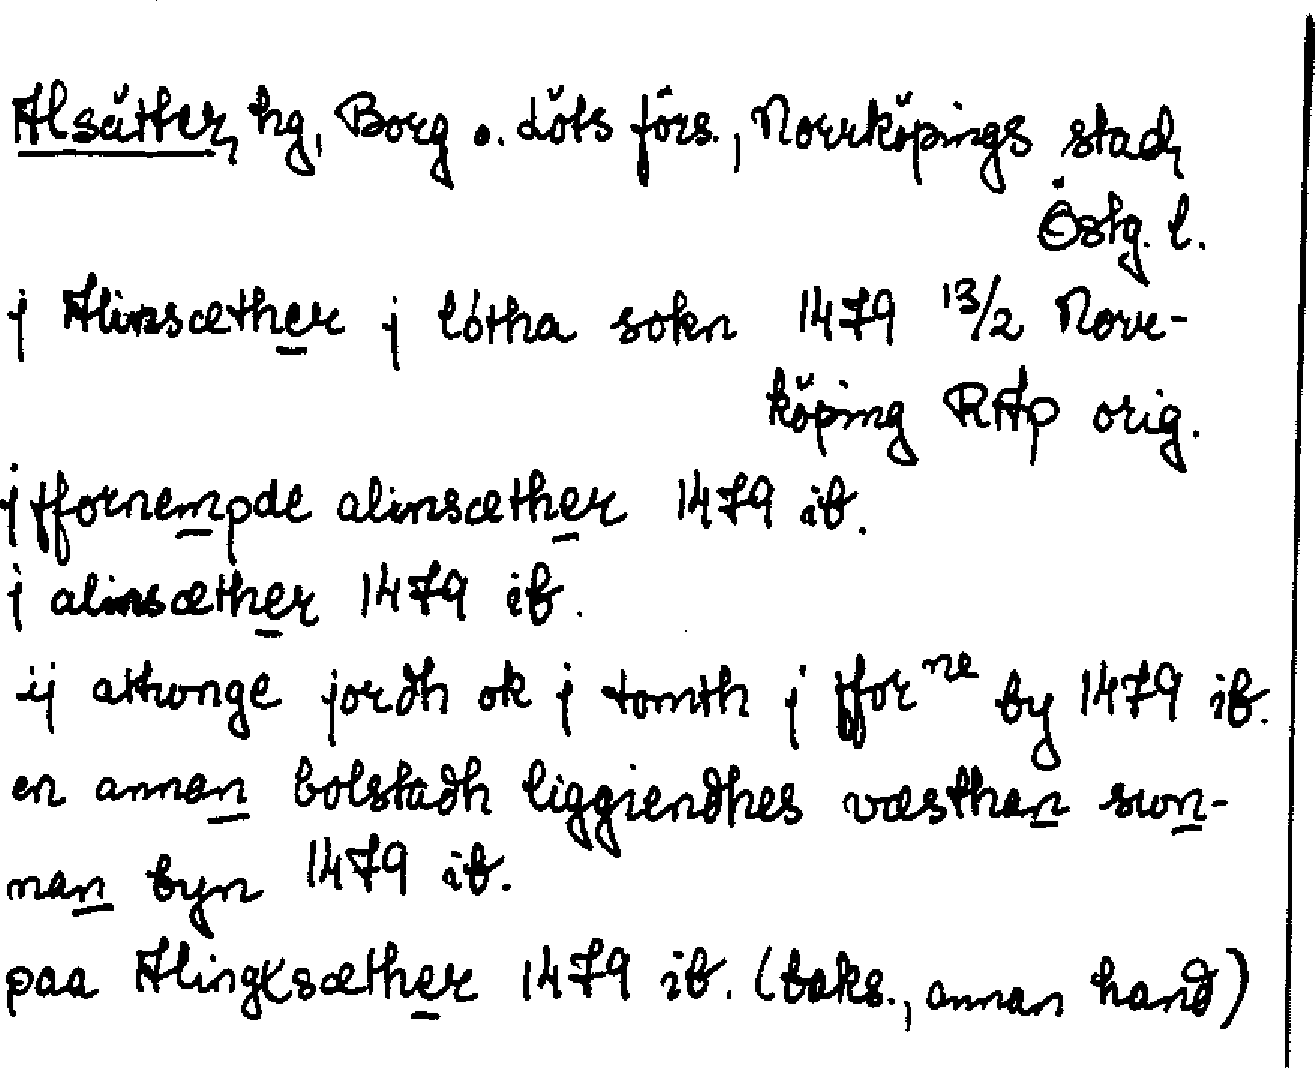 Alsätter, hg, Borg o. Löts förs., Norrköpings stad,
Östg. l.
j Alinsæther j lötha sokn 1479 13/2 Norr-
köping RAp orig.
j ffornempde alinsæther 1479 ib.
j alinsæther 1479 ib.
ij attunge jordh ok j tomth j ffor ne by 1479 ib.
en annan bolstadh liggiendhes væsthan swn-
nan byn 1479 ib.
paa Alingxsæther 1479 ib. (baks., annan hand)